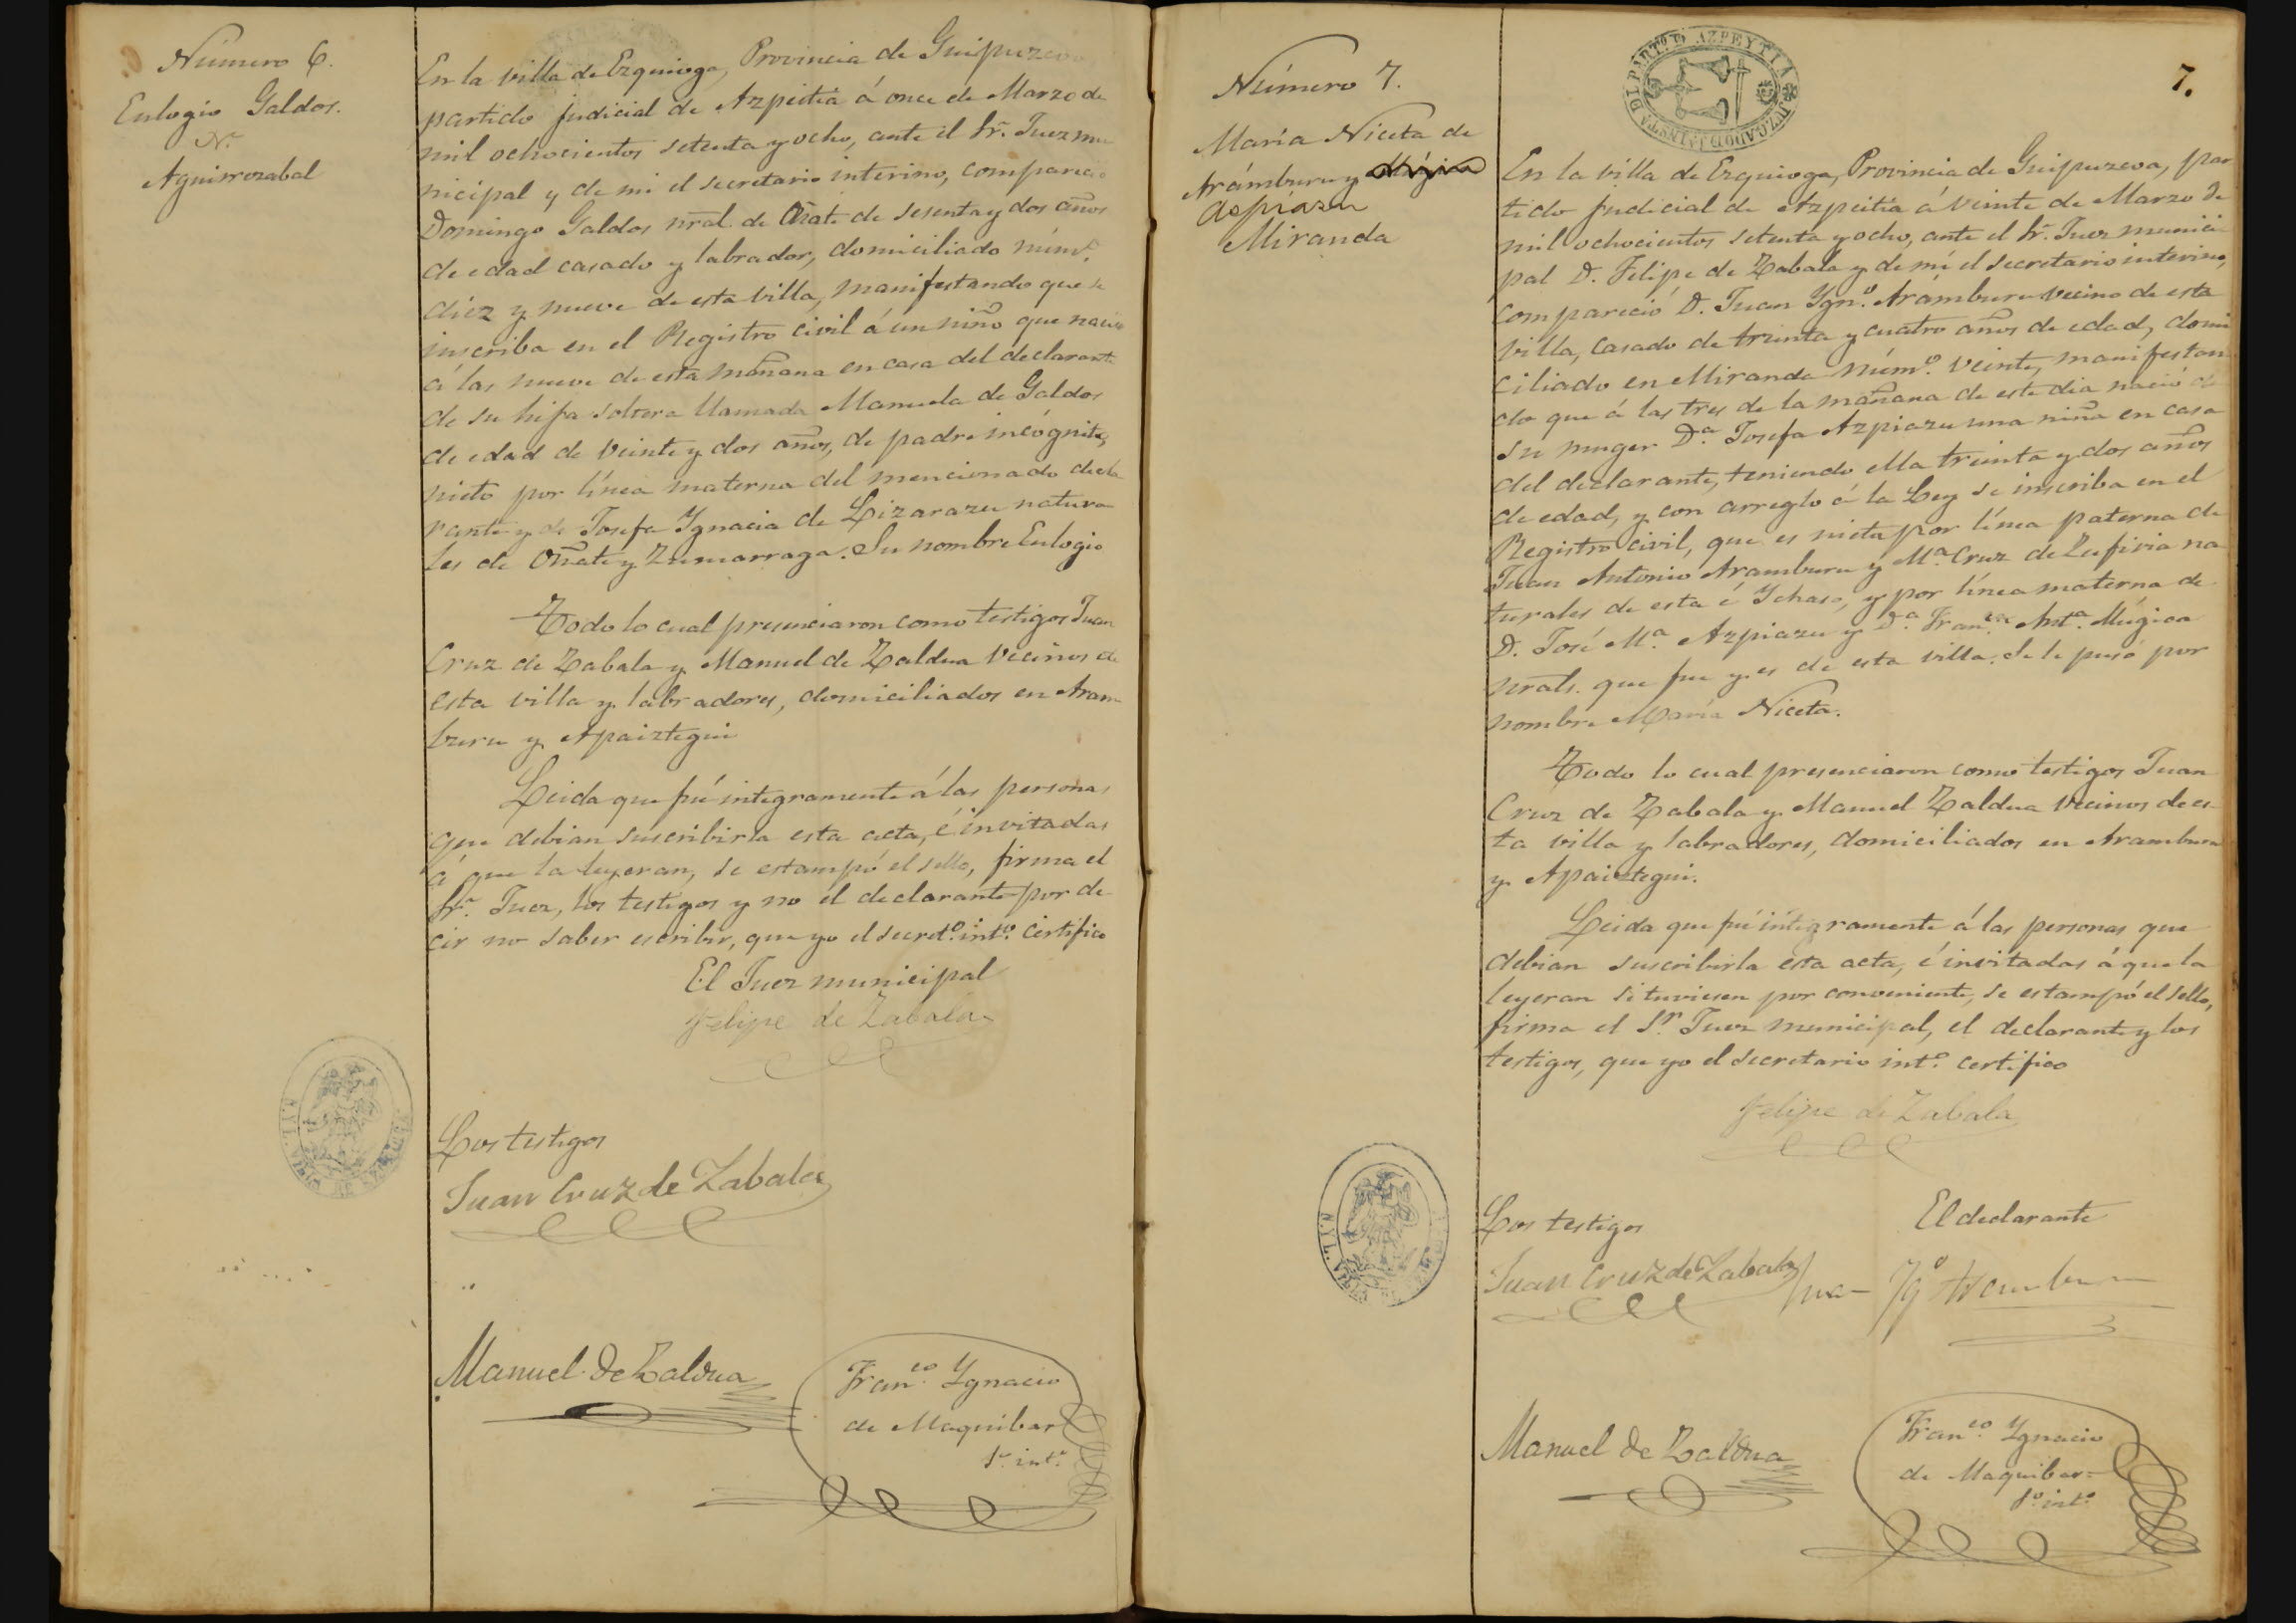 Número 6.
Eulogio Galdos.
N.
Aguirrezabal
En la villa de Ezquioga, Provincia de Guipuzcoa
partido judicial de Azpeitia á once de Marzo de
mil ochocientos setenta y ocho, ante el Sr. Juez mu
nicipal y de mi el secretario interino, compareció
Domingo Galdos nral. de Oñate de sesenta y dos años
de edad casado y labrador, domiciliado núm.
diez y nueve de esta villa, manifestando que se
inscriba en el Registro civil á un niño que nació
á las nueve de esta mañana en casa del declarante
de su hija soltera llamada Manuela de Galdos
de edad de veinte y dos años, de padre incógnito,
nieto por línea materna del mencionado decla
rante y de Josefa Ygnacia de Lizarazu natura
les de Oñate y Zumarraga. Su nombre Eulogio
Todo lo cual presenciaron como testigos Juan
Cruz de Zabala y Manuel de Zaldua vecinos de
esta villa y labradores, domiciliados en Aram
buru y Apaiztegui
Leida que fué integramente á las personas
que debian suscribirla esta acta, é invitadas
á que la leyeran, se estampó el sello, firma el
Sr. Juez, los testigos y no el declarante por de
cir no saber escribir, que yo el secret.º int.º certifico
El Juez municipal
Felipe de Zabala
Los testigos
Juan Cruz de Zabala
Manuel de Zaldua
Fran.co Ygnacio
de Maquibar
S.º int.º
7.
JUZGADO DE 1ª INSTA DEL PARTº DE AZPEYTIA
Número 7.
María Niceta de
Arámburu y Múgica
Aspiazu
Miranda
En la villa de Ezquioga, Provincia de Guipuzcoa, par
tido judicial de Azpeitia á veinte de Marzo de
mil ochocientos setenta y ocho, ante el Sr. Juez munici
pal D. Felipe de Zabala y de mí el secretario interino,
compareció D. Juan Ygn.º Arámburu vecino de esta
villa, casado de treinta y cuatro años de edad, domi
ciliado en Miranda núm.º veinte, manifestan
do que á las tres de la mañana de este dia nació de
su muger D.ª Josefa Azpiazu una niña en casa
del declarante, teniendo ella treinta y dos años
de edad, y con arreglo á la Ley se inscriba en el
Registro civil, que es nieta por línea paterna de
Juan Antonio Aramburu y M.ª Cruz de Zufiria na
turales de esta é Ychaso, y por línea materna de
D. José M.ª Azpiazu y D.ª Fran.ca Ant.ª Múgica
nrals. que fue y es de esta villa. Se le puso por
nombre María Niceta.
Todo lo cual presenciaron como testigos Juan
Cruz de Zabala y Manuel Zaldua vecinos de es
ta villa y labradores, domiciliados en Aramburu
y Apaiztegui.
Leida que fué integramente á las personas que
debian suscribirla esta acta, é invitadas á que la
leyeran si tuviesen por conveniente, se estampó el sello,
firma el Sr. Juez municipal, el declarante y los
testigos, que yo el secretario int.º certifico
Felipe de Zabala
Los testigos
El declarante
Juan Cruz de Zabala
Juan Yg.º Aramburu
Manuel de Zaldua
Fran.co Ygnacio
de Maquibar
S.º int.º